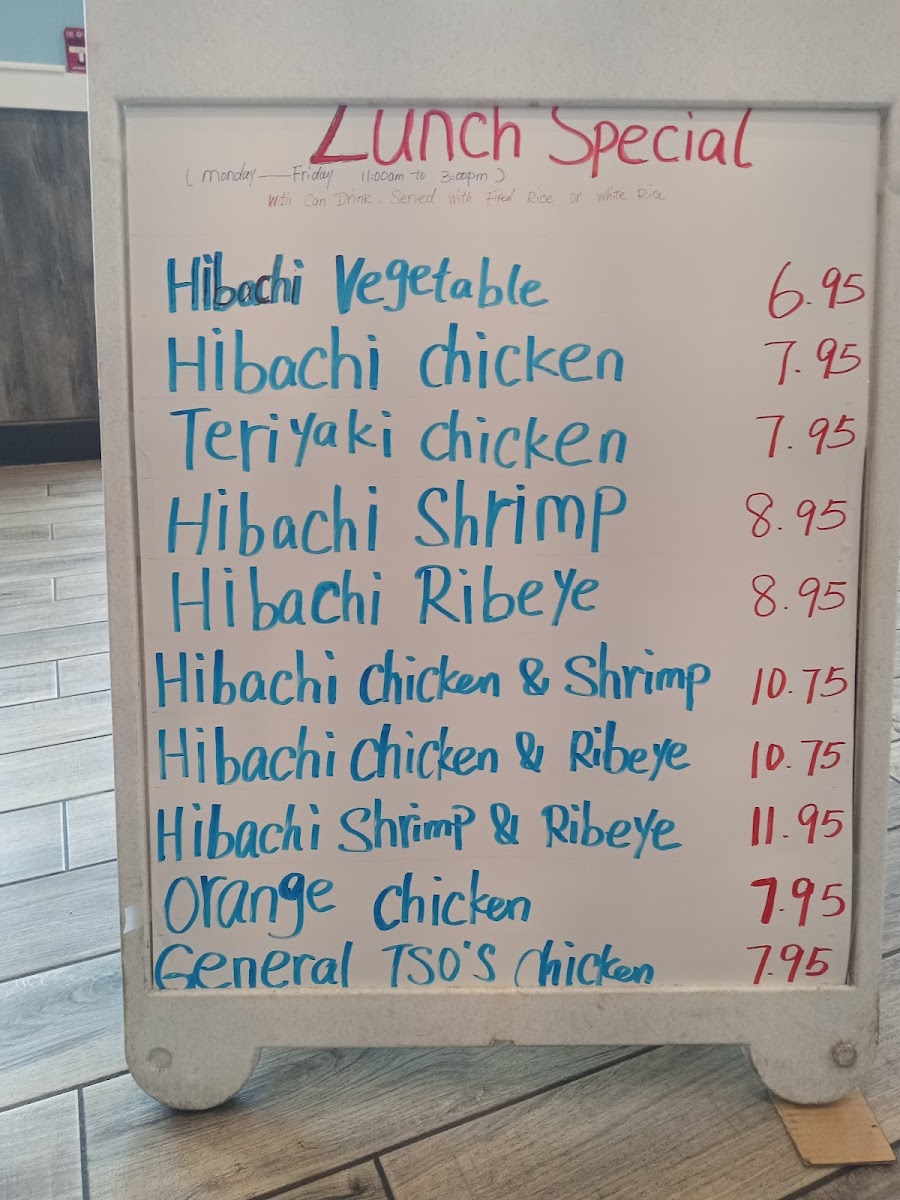 Lunch Special
(monday — Friday 11:00am to 3:00pm)
With Can Drink. Served with Fired Rice or white Rice
Hibachi Vegetable 6.95
Hibachi chicken 7.95
Teriyaki chicken 7.95
Hibachi Shrimp 8.95
Hibachi Ribeye 8.95
Hibachi chicken & Shrimp 10.75
Hibachi chicken & Ribeye 10.75
Hibachi Shrimp & Ribeye 11.95
Orange chicken 7.95
General TSO'S chicken 7.95